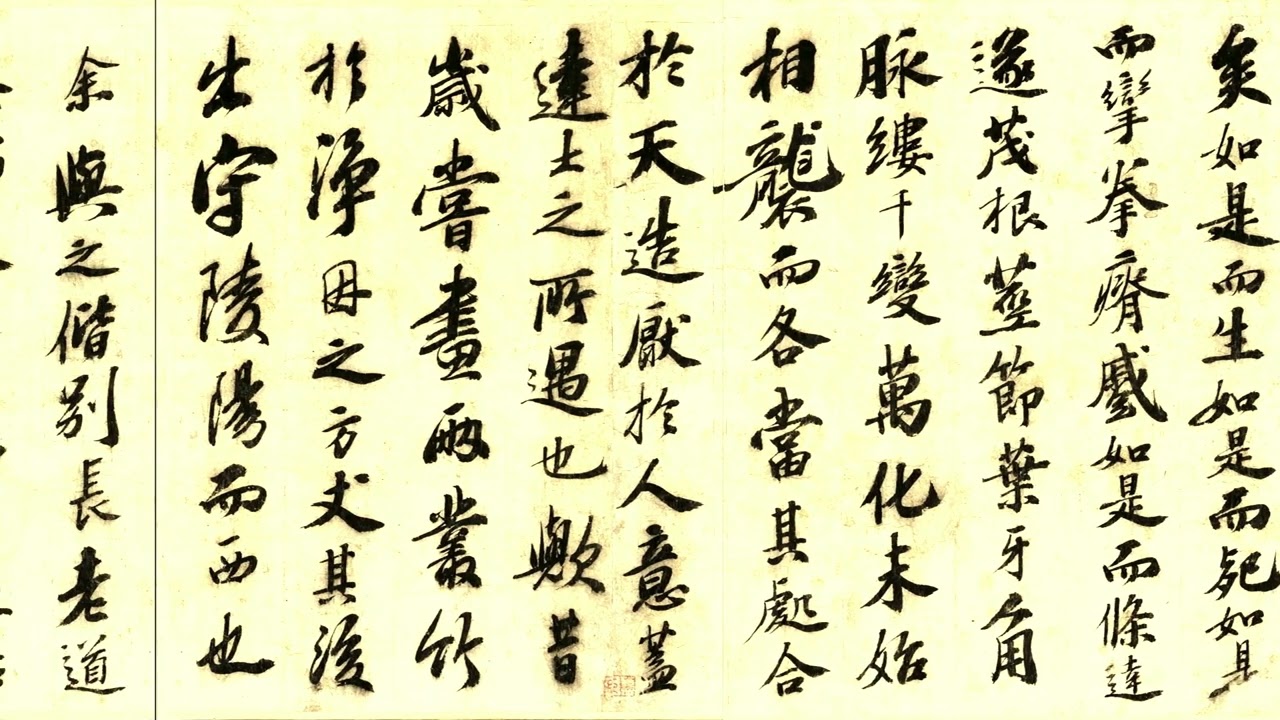 矣如是而生如是而死如是
而攣拳瘠蹙如是而條達
遂茂根莖節葉牙角
脉縷千變萬化未始
相襲而各當其處合
於天造厭於人意蓋
達士之所遇也歟昔
歲嘗畫兩叢竹
於淨因之方丈其後
出守陵陽而西也
余與之偕別長老道